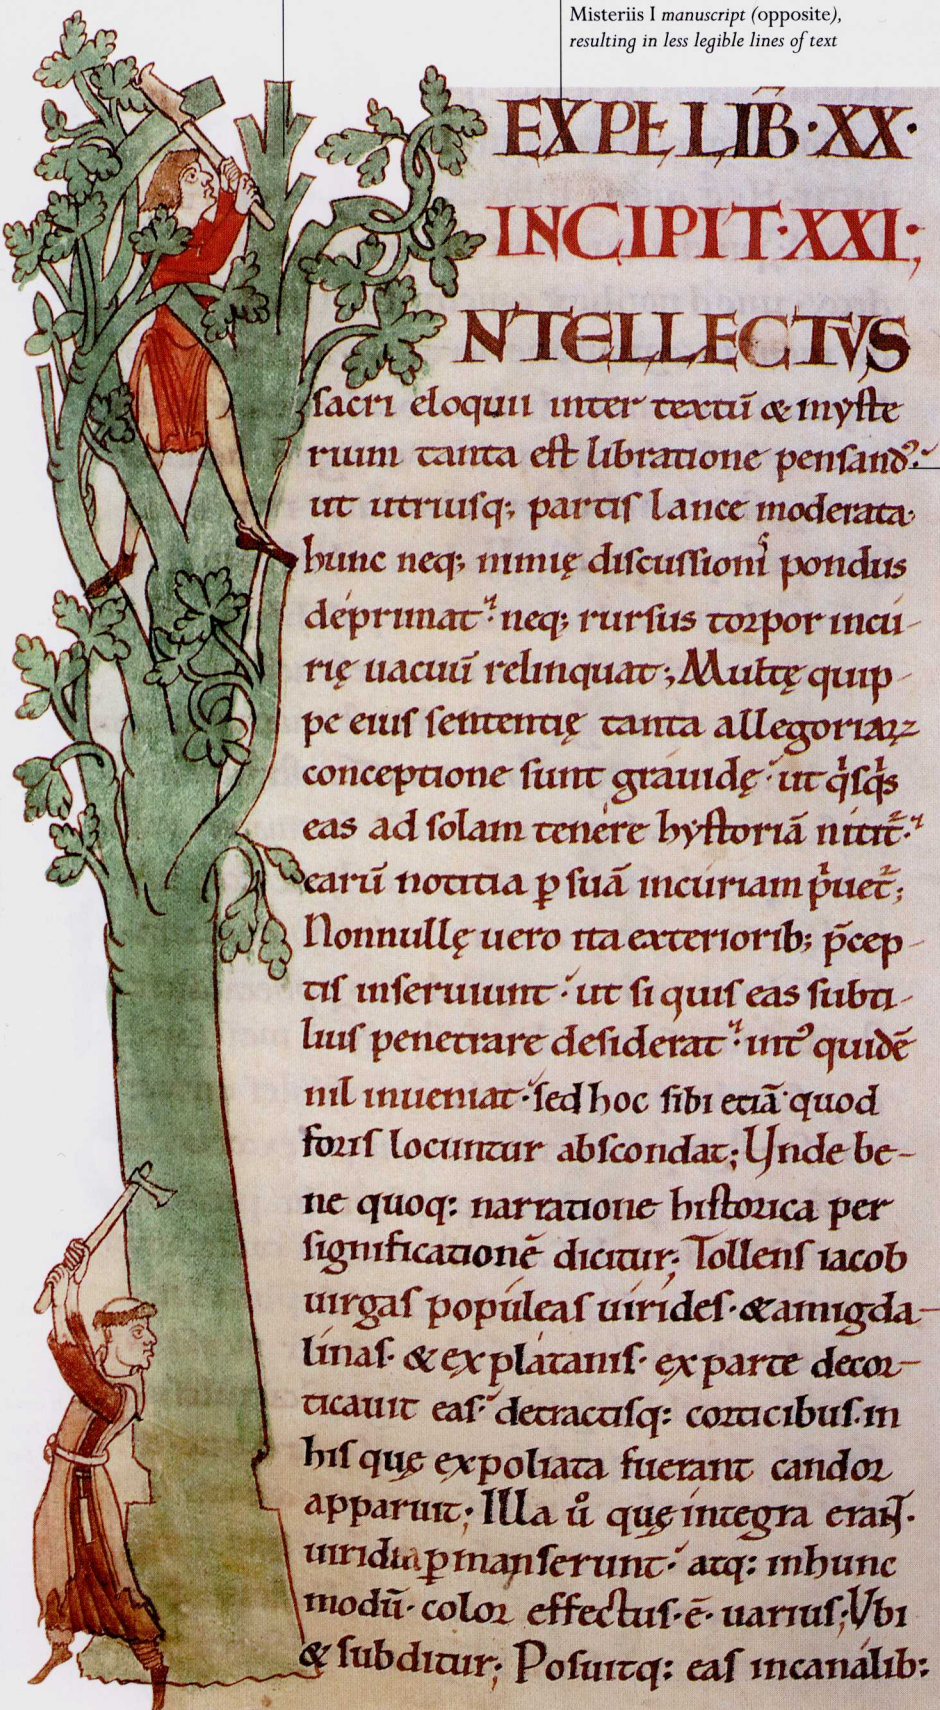 Misteriis I manuscript (opposite),
resulting in less legible lines of text
EXPL LIB̅·XX·
INCIPIT·XXI;
NTELLECTVS
sacri eloquii inter textū & myste
rium tanta est libratione pensandꝰ·
ut utriusq; partis lance moderata·
hunc neq; nimię discussioni pondus
deprimat· neq; rursus torpor incu-
rię uacuū relinquat; Multę quip-
pe eius sententię tanta allegoriaꝝ
conceptione sunt grauidę· ut qͥsqͥs
eas ad solam tenere hystoriā nitit᷑·
earū notitia ꝑ suā incuriam pͥuet᷑;
Nonnullę uero ita exteriorib; p̄cep-
tis inseruiunt· ut si quis eas subti-
lius penetrare desiderat· intꝰ quidē
nil inueniat· sed hoc sibi etiā quod
foris locuntur abscondat; Unde be-
ne quoq: narratione historica per
significationē dicitur; Tollens iacob
uirgas populeas uirides· & amigda-
linas· & ex platanis· ex parte decor-
ticauit eas· detractisq: corticibus· in
his quę expoliata fuerant candor
apparuit; Illa ů quę integra erant·
uiridia ꝑmanserunt· atq: in hunc
modū· color effectus· ē· uarius; Vbi
& subditur; Posuitq: eas in canalib: